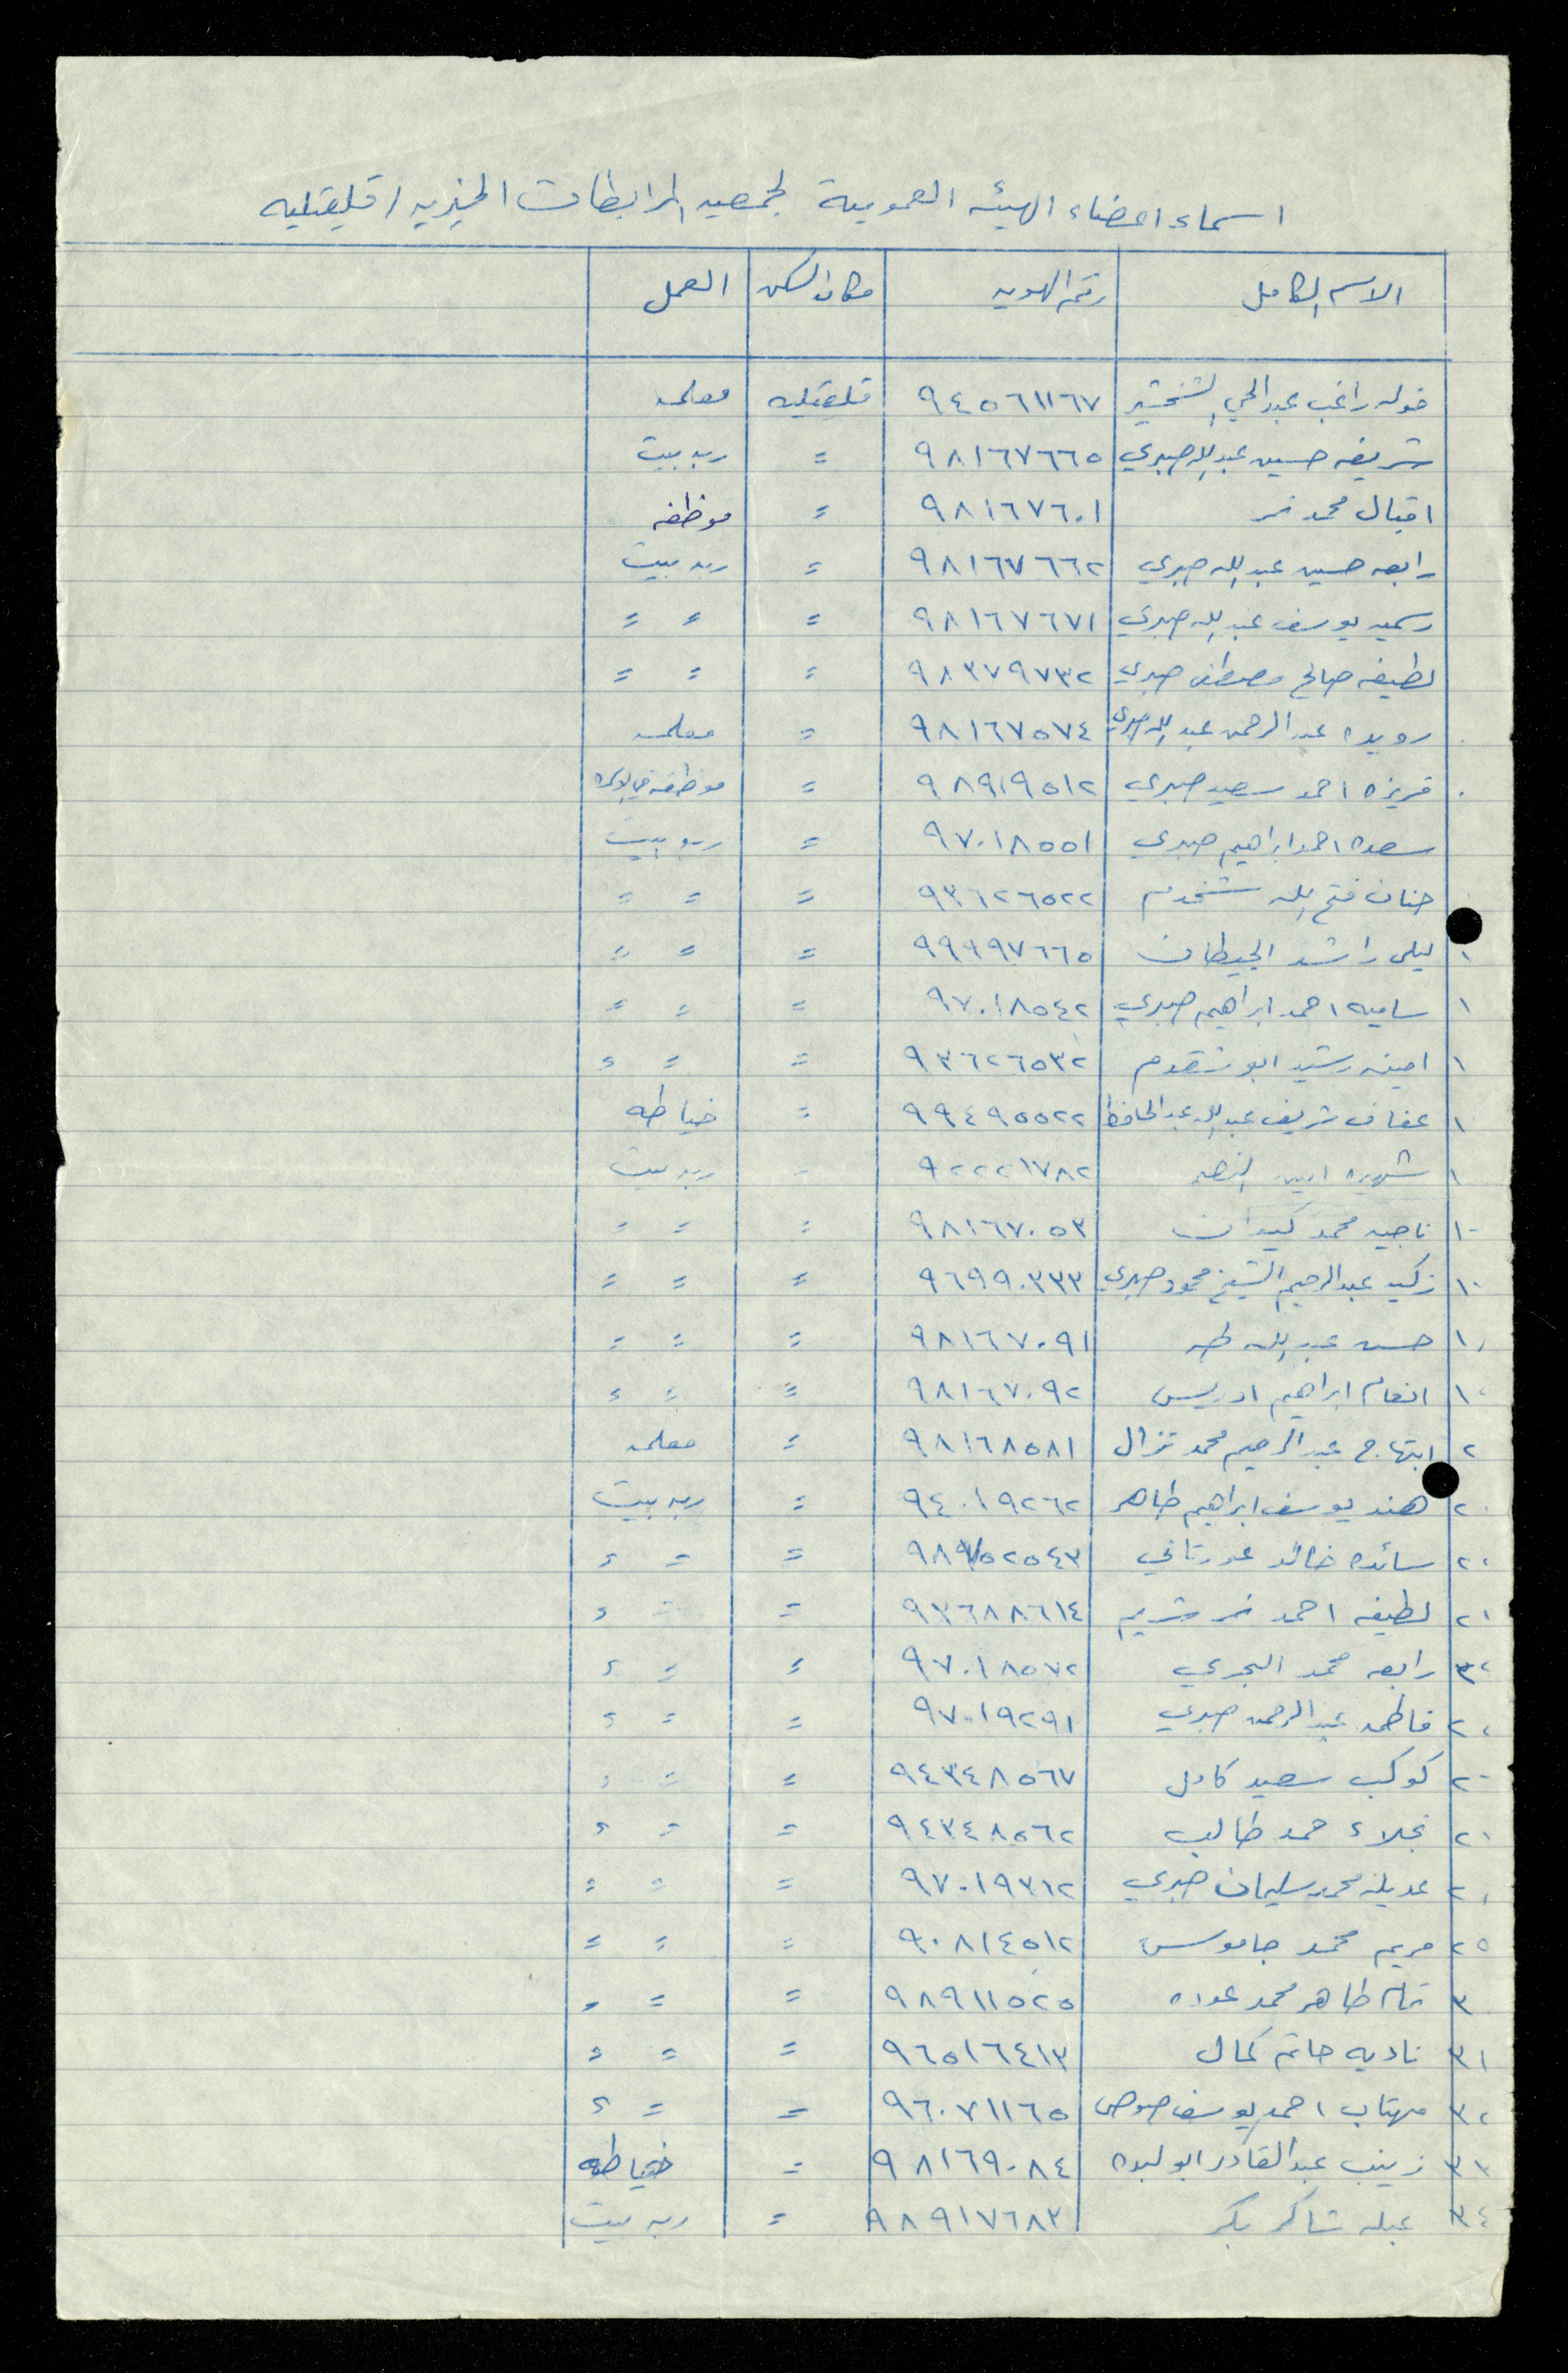 اسماء اعضاء الهيئه العمومية لجمعيه المرابطات الخيريه / قلقيليه
الاسم الكامل رقم الهويه مكان السكن العمل
خوله راغب عبد الحي الشخشير ٩٤٥٦١١٦٧ قلقيليه معلمه
شريفه حسين عبد الله صبري ٩٨١٦٧٦٦٥ = ربه بيت
اقبال محمد نمر ٩٨١٦٧٦٠١ = موظفه
رابعه حسين عبد الله صبري ٩٨١٦٧٦٦٢ = ربه بيت
رسميه يوسف عبد الله صبري ٩٨١٦٧٦٧١ = = =
لطيفه صالح مصطفى صبري ٩٨٣٧٩٧٣٢ = = =
رويده عبد الرحمن عبد الله صبري ٩٨١٦٧٥٧٤ = معلمه
فريزه احمد سعيد صبري ٩٨٩١٩٥١٢ = موظفه في
سعده احمد ابراهيم صبري ٩٧٠١٨٥٥١ = ربه بيت
حنان فتح الله شخدم ٩٣٦٢٦٥٢٢ = = =
١ ليلى راشد الجيطان ٩٩٩٩٧٦٦٥ = = =
١ ساميه احمد ابراهيم صبري ٩٧٠١٨٥٤٢ = = =
١ امينه رشيد ابو ٩٣٦٢٦٥٣٢ = = =
١ عفاف شريف عبد الله عبد الحافظ ٩٩٤٩٥٥٢٢ = خياطه
١ شهيره امين ٩٢٢٢١٧٨٢ = ربه بيت
١ ناجيه محمد كيوان ٩٨١٦٧٠٥٣ = = =
١ زكيه عبد الرحيم الشيخ محمود صبري ٩٦٩٩٠٣٣٣ = = =
١ حسن عبد الله طه ٩٨١٦٧٠٩١ = = =
١ انعام ابراهيم ادريس ٩٨١٦٧٠٩٢ = = =
٢ ابتهاج عبد الرحيم محمد نزال ٩٨١٦٨٥٨١ = معلمه
٢ هند يوسف ابراهيم طاهر ٩٤٠١٩٢٦٢ = ربه بيت
٢ سائده خالد عورتاني = = =
٢ لطيفه احمد نمر شريم ٩٣٦٨٨٦١٤ = = =
رابعه محمد البحري ٩٧٠١٨٥٧٢ = = =
٢ فاطمه عبد الرحمن صبري ٩٧٠١٩٢٩١ = = =
٢ كوكب سعيد كامل ٩٤٣٤٨٥٦٧ = = =
٢ نجلاء حمد طالب ٩٤٣٤٨٥٦٢ = = =
٢ عديله محمد سليمان صبري ٩٧٠١٩٣١٢ = = =
٢٥ مريم محمد جاموس ٩٠٨١٤٥١٢ = = =
٣ تمام طاهر محمد عوده ٩٨٩١١٥٢٥ = = =
٣١ ناديه حاتم كمال ٩٦٥١٦٤١٣ = = =
٣٢ مهتاب احمد يوسف صوص ٩٦٠٧١١٦٥ = = =
٣٣ زينب عبد القادر ابو لبده ٩٨١٦٩٠٨٤ = خياطه
٣٤ عبله شاكر بكر ٩٨٩١٧٦٨٣ = ربه بيت